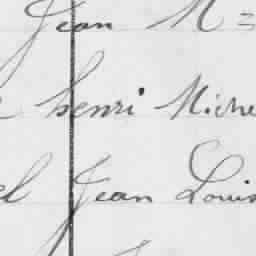 Jean M
henri Miche
el Jean Louis